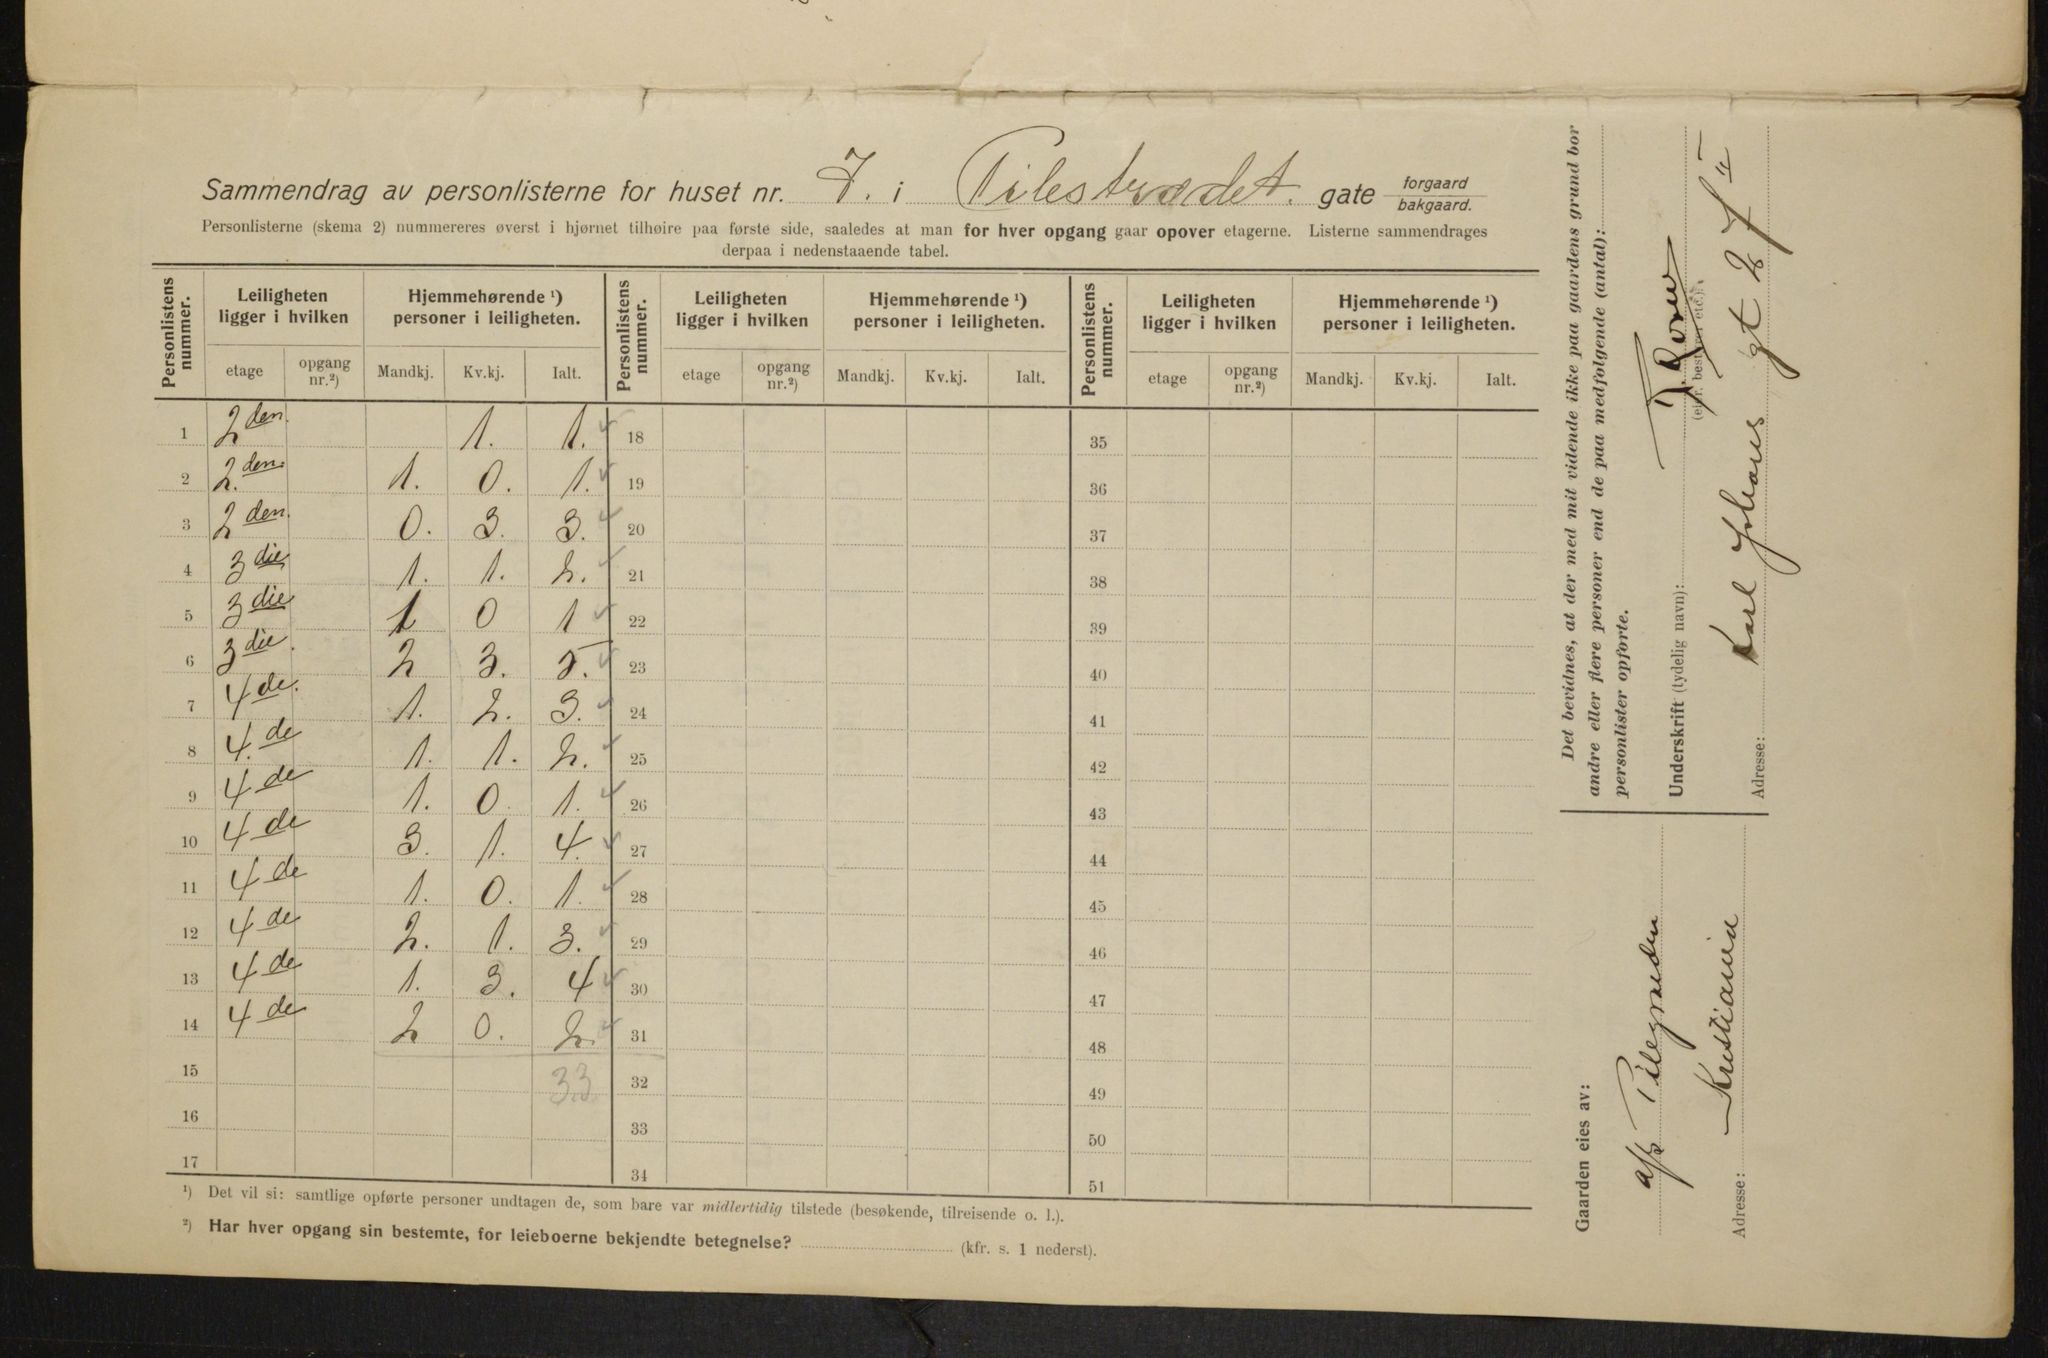 Sammendrag av personlisterne for huset nr. 7. i Pilestrædet. gate forgaard bakgaard.
Personlisterne (skema 2) nummereres øverst i hjørnet tilhøire paa første side, saaledes at man for hver opgang gaar opover etagerne. Listerne sammendrages
derpaa i nedenstaaende tabel.
Personlistens nummer. Leiligheten ligger i hvilken Hjemmehørende ¹) personer i leiligheten. Personlistens nummer. Leiligheten ligger i hvilken Hjemmehørende ¹) personer i leiligheten. Personlistens nummer. Leiligheten ligger i hvilken Hjemmehørende ¹) personer i leiligheten.
etage opgang nr.²) Mandkj. Kv.kj. Ialt. etage opgang nr.²) Mandkj. Kv.kj. Ialt. etage opgang nr.²) Mandkj. Kv.kj. Ialt.
1 2den. 1. 1. 18 35
2 2.den. 1. 0. 1. 19 36
3 2den. 0. 3. 3. 20 37
4 3die 1. 1. 2. 21 38
5 3die 1 0 1 22 39
6 3die. 2 3. 5. 23 40
7 4de. 1. 2. 3. 24 41
8 4.de 1. 1. 2. 25 42
9 4de 1. 0. 1. 26 43
10 4de 3. 1. 4. 27 44
11 4de 1. 0. 1. 28 45
12 4de 2. 1. 3. 29 46
13 4de 1. 3. 4 30 47
14 4de 2 0. 2. 31 48
15 33 32 49
16 33 50
17 34 51
¹) Det vil si: samtlige opførte personer undtagen de, som bare var midlertidig tilstede (besøkende, tilreisende o. l.).
²) Har hver opgang sin bestemte, for leieboerne bekjendte betegnelse? (kfr. s. 1 nederst).
Det bevidnes, at der med mit vidende ikke paa gaardens grund bor
andre eller flere personer end de paa medfolgende (antal):
personlister opforte.
Underskrift (tydelig navn):
(eier, bestyrer etc.)
Adresse: Karl Johans gt 2
Gaarden eies av:
a/s
Adresse: Kristiania